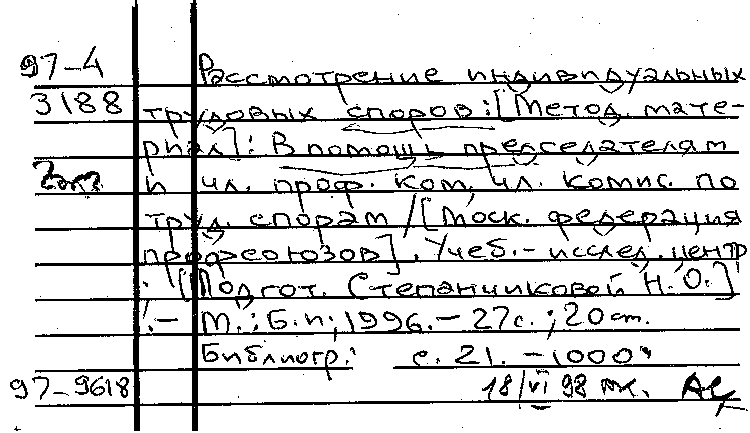 97-4 Рассмотрение индивидуальных
3188 трудовых споров: [Метод. мате-
риал]: В помощь председателям
и чл. проф. ком, чл. комис. по
труд. спорам / [Моск. федерация
профсоюзов]. Учеб.- исслед. центр
; [Подгот. Степанчиковой Н.О.]
.- М.: Б.и; 1996. - 27с.; 20см.
Библиогр.: с. 21. - 1000
97-9618 18/VI 98